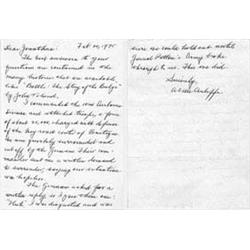 Dear Jonathan: Feb 20, 1975
The best answers to your
question are contained in the
many histories that are available,
like "Battle: the Story of the Bulge"
by John Toland.
I commanded the 101st Airborne
Division and attached troops, a force
of about charged with defense
of the key road center of Bastogne.
We were completely surrounded and
cut off by the Germans. Their com-
mander sent me a written demand
to surrender, saying our situation
was hopeless.
The Germans asked for a
written reply, so I gave them one:
"Nuts." I was disgusted and was
sure we could hold out until
General Patton's Army broke
through to us. This we did.
Sincerely,
A. C. McAuliffe